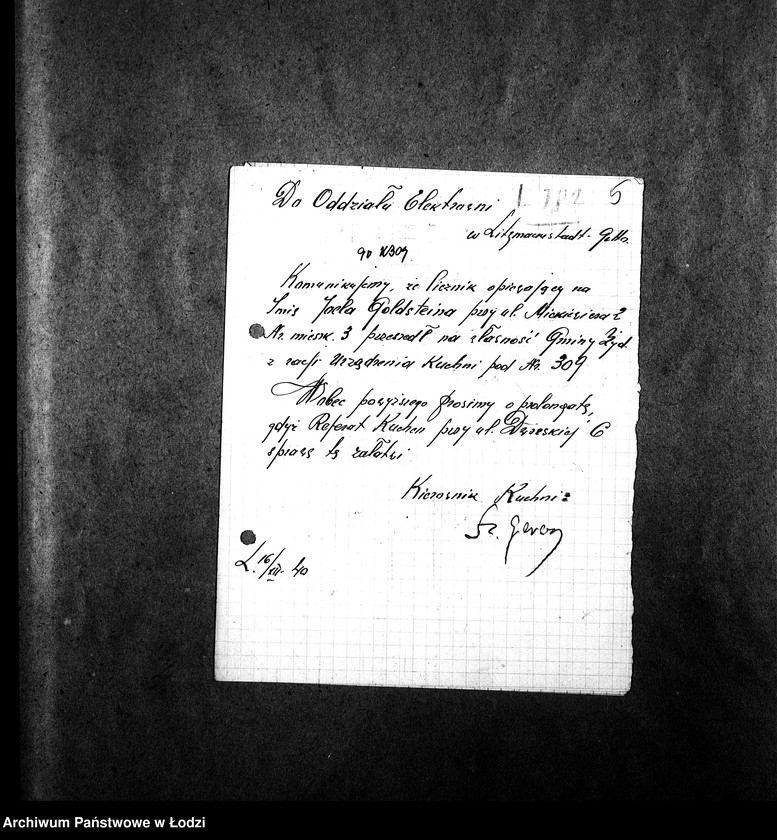 Do Oddziału Elektrowni
L 782 5
w Litzmannstadt-Getto.
Komunikujemy, że licznik opiewający na
Imię Joela Goldsteina przy ul. Mickiewicza 2
Nr. mieszk. 3 przeszedł na własność Gminy Żyd.
z racji Urządzenia Kuchni pod Nr. 309
Wobec powyższego prosimy o prolongatę,
gdyż Referat Kuchen przy ul. Dworskiej 6
sprawę tę załatwi
Kierownik Kuchni:
Sz.
Ł. 16/XII. 40
Archiwum Państwowe w Łodzi